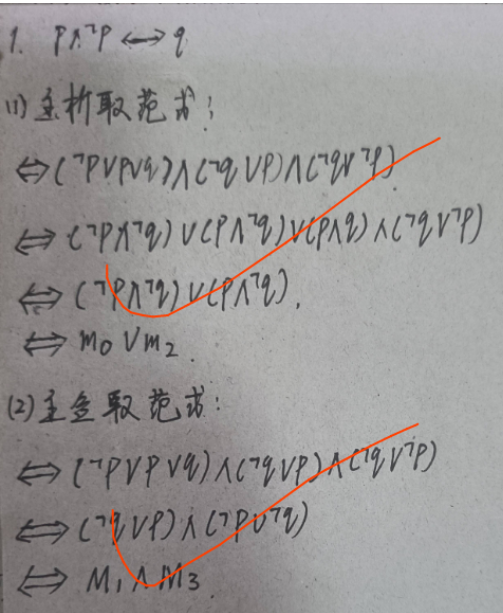 1. P∧¬P ↔ q
(1) 主析取范式:
⇔ (¬P∨P∨q)∧(¬q∨P)∧(¬q∨¬P)
⇔ (¬P∧¬q)∨(P∧¬q)∨(P∧q)∧(¬q∨¬P)
⇔ (¬P∧¬q)∨(P∧¬q).
⇔ m₀∨m₂.
(2) 主合取范式:
⇔ (¬P∨P∨q)∧(¬q∨P)∧(¬q∨¬P)
⇔ (¬q∨P)∧(¬P∨¬q)
⇔ M₁∧M₃